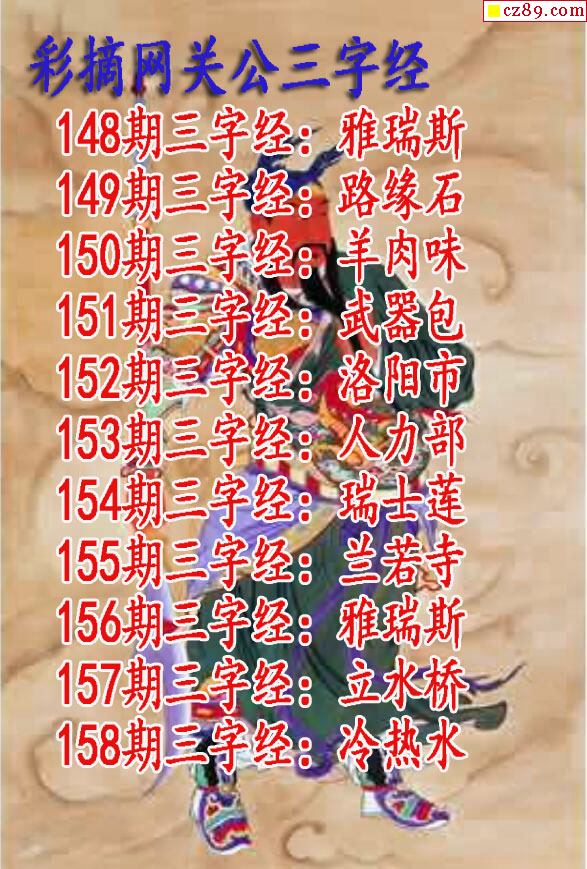 cz89.com
彩摘网关公三字经
148期三字经：雅瑞斯
149期三字经：路缘石
150期三字经：羊肉味
151期三字经：武器包
152期三字经：洛阳市
153期三字经：人力部
154期三字经：瑞士莲
155期三字经：兰若寺
156期三字经：雅瑞斯
157期三字经：立水桥
158期三字经：冷热水